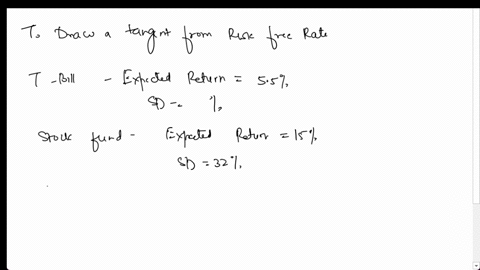 To Draw a tangent from Risk free Rate
T-Bill - Expected Return = 5.5%,
SD - %,
Stock fund - Expected Return = 15%
SD = 32%,